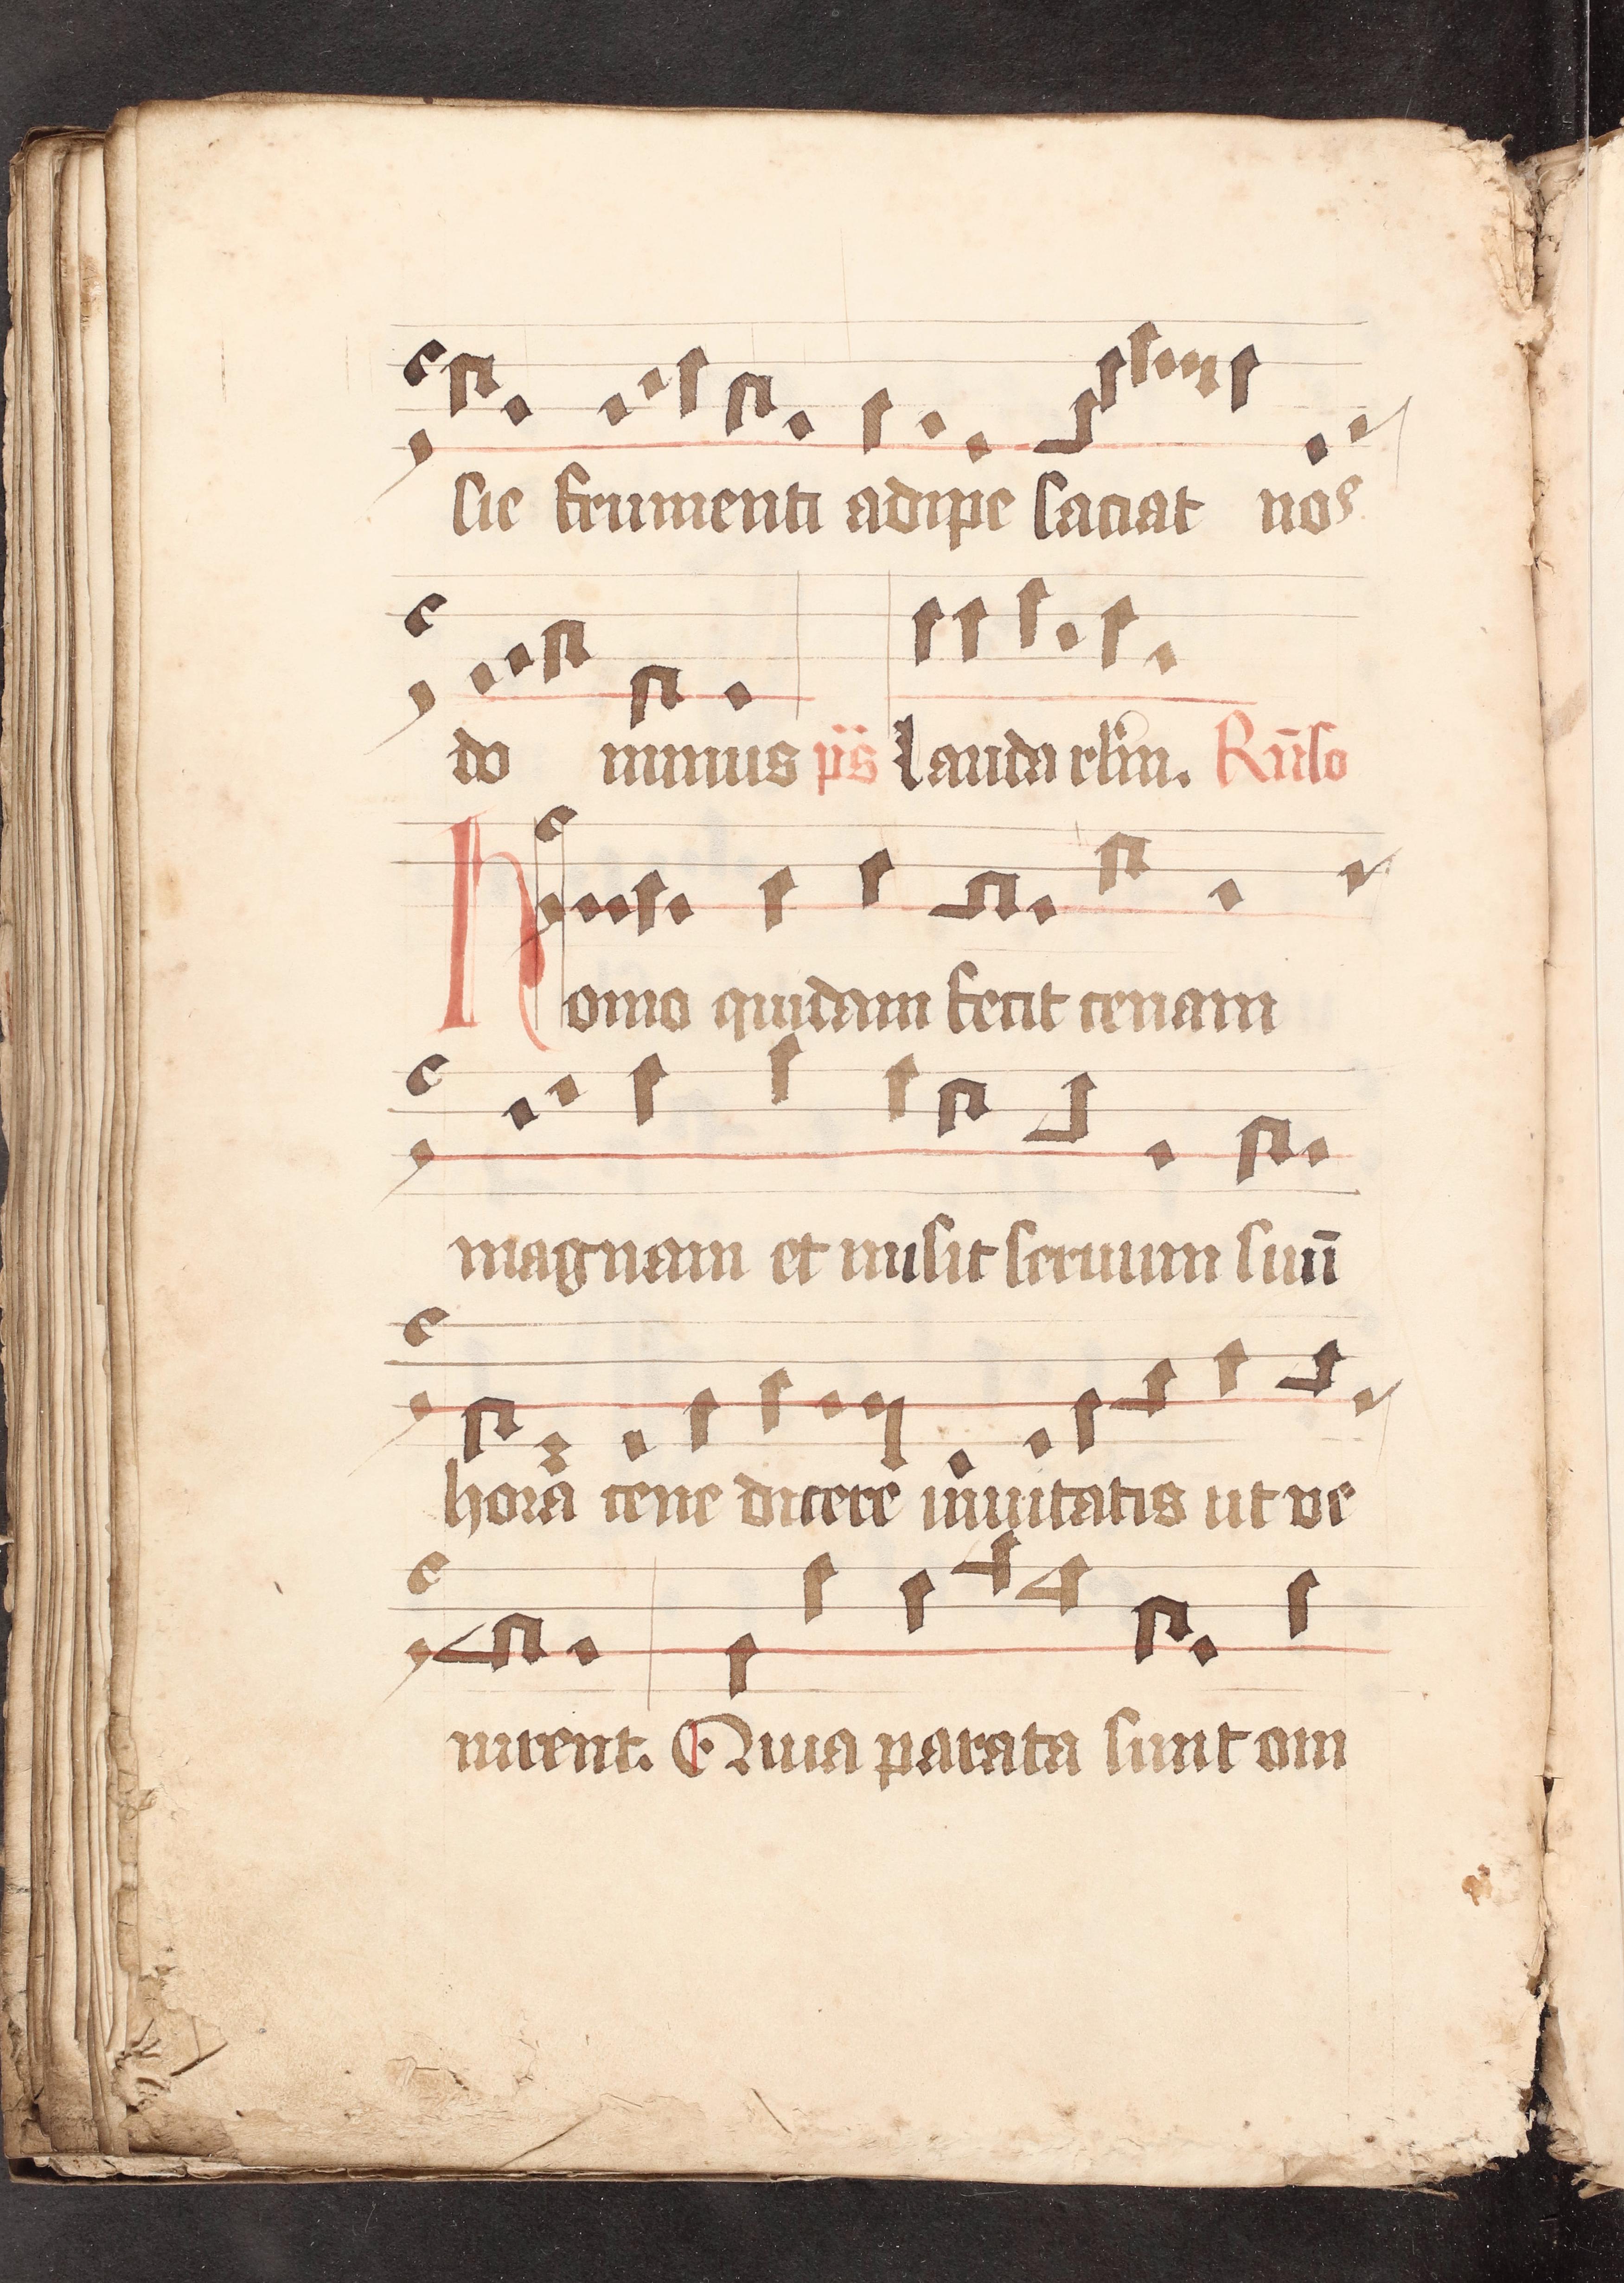 sie frumenti adipe saciat nos
do minus p̄s Lauda ihrlm. Rn̄so
Homo quidam fecit cenam
magnam et misit seruum suū
horā cene dicere inuitatis ut ve
nirent. Quia parata sunt om